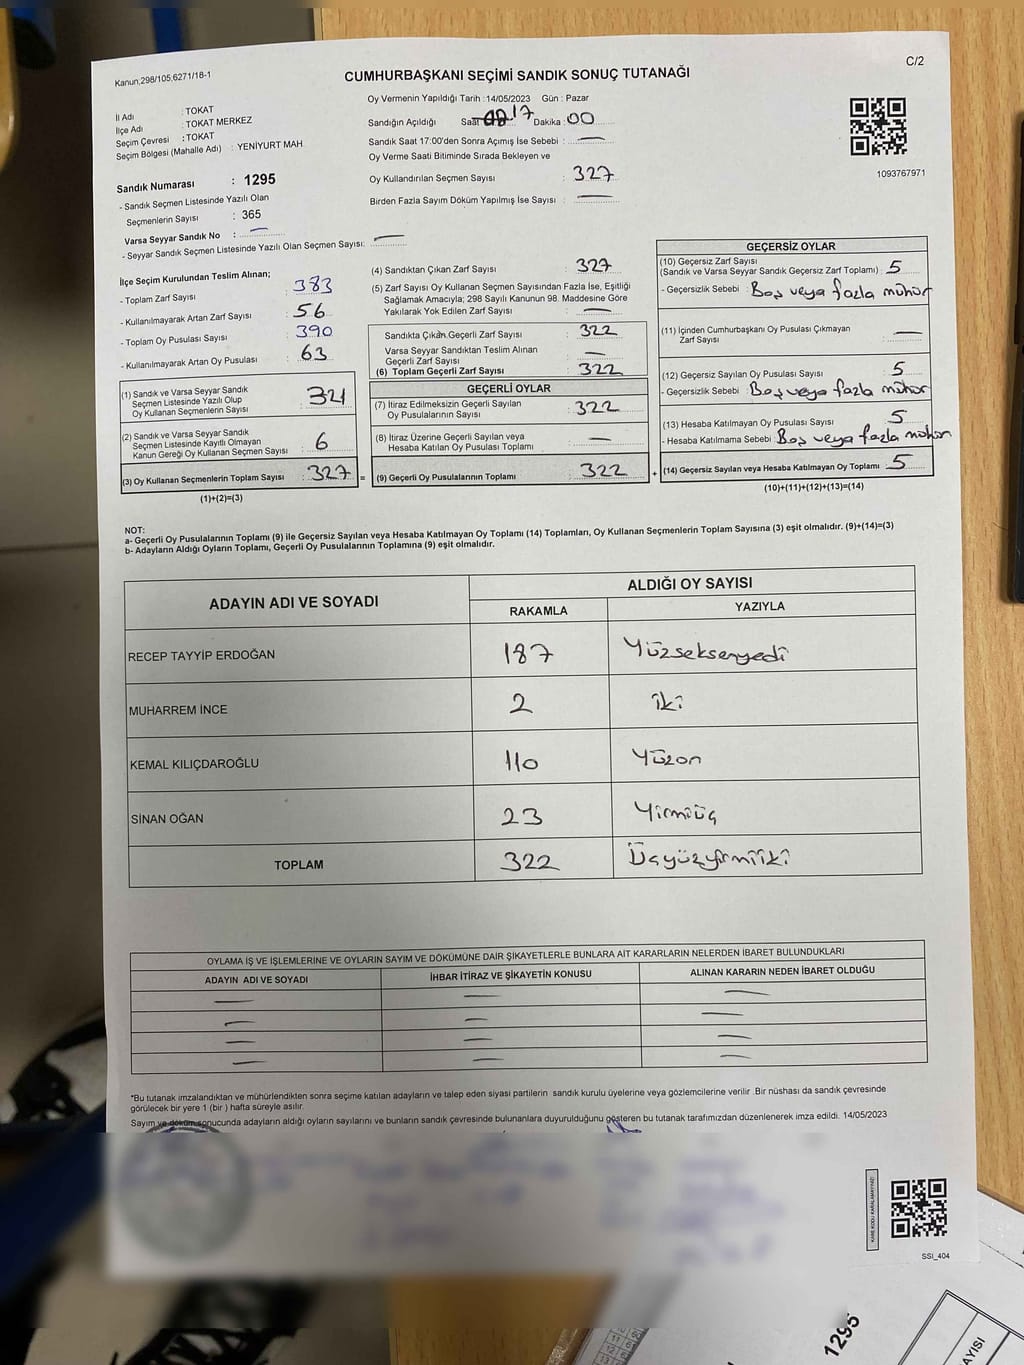 Kanun,298/105,6271/18-1
C/2
CUMHURBAŞKANI SEÇİMİ SANDIK SONUÇ TUTANAĞI
İl Adı : TOKAT
İlçe Adı : TOKAT MERKEZ
Seçim Çevresi : TOKAT
Seçim Bölgesi (Mahalle Adı) : YENİYURT MAH.
Oy Vermenin Yapıldığı Tarih :14/05/2023 Gün : Pazar
Sandığın Açıldığı Saat 17 Dakika : 00
Sandık Saat 17:00'den Sonra Açımış İse Sebebi : —
Oy Verme Saati Bitiminde Sırada Bekleyen ve
Oy Kullandırılan Seçmen Sayısı : 327
Birden Fazla Sayım Döküm Yapılmış İse Sayısı : —
1093767971
Sandık Numarası : 1295
- Sandık Seçmen Listesinde Yazılı Olan
Seçmenlerin Sayısı : 365
Varsa Seyyar Sandık No : —
- Seyyar Sandık Seçmen Listesinde Yazılı Olan Seçmen Sayısı: —
İlçe Seçim Kurulundan Teslim Alınan;
- Toplam Zarf Sayısı : 383
- Kullanılmayarak Artan Zarf Sayısı : 56
- Toplam Oy Pusulası Sayısı : 390
- Kullanılmayarak Artan Oy Pusulası : 63
(1) Sandık ve Varsa Seyyar Sandık
Seçmen Listesinde Yazılı Olup
Oy Kullanan Seçmenlerin Sayısı : 321
(2) Sandık ve Varsa Seyyar Sandık
Seçmen Listesinde Kayıtlı Olmayan
Kanun Gereği Oy Kullanan Seçmen Sayısı : 6
(3) Oy Kullanan Seçmenlerin Toplam Sayısı : 327 =
(1)+(2)=(3)
(4) Sandıktan Çıkan Zarf Sayısı : 327
(5) Zarf Sayısı Oy Kullanan Seçmen Sayısından Fazla İse, Eşitliği
Sağlamak Amacıyla; 298 Sayılı Kanunun 98. Maddesine Göre
Yakılarak Yok Edilen Zarf Sayısı : —
Sandıkta Çıkan Geçerli Zarf Sayısı : 322
Varsa Seyyar Sandıktan Teslim Alınan
Geçerli Zarf Sayısı : —
(6) Toplam Geçerli Zarf Sayısı : 322
GEÇERLİ OYLAR
(7) İtiraz Edilmeksizin Geçerli Sayılan
Oy Pusulalarının Sayısı : 322
(8) İtiraz Üzerine Geçerli Sayılan veya
Hesaba Katılan Oy Pusulası Toplamı : —
(9) Geçerli Oy Pusulalarının Toplamı : 322 +
GEÇERSİZ OYLAR
(10) Geçersiz Zarf Sayısı
(Sandık ve Varsa Seyyar Sandık Geçersiz Zarf Toplamı) : 5
- Geçersizlik Sebebi : Boş veya fazla mühür
(11) İçinden Cumhurbaşkanı Oy Pusulası Çıkmayan
Zarf Sayısı : —
(12) Geçersiz Sayılan Oy Pusulası Sayısı : 5
- Geçersizlik Sebebi : Boş veya fazla mühür
(13) Hesaba Katılmayan Oy Pusulası Sayısı : 5
- Hesaba Katılmama Sebebi : Boş veya fazla mühür
(14) Geçersiz Sayılan veya Hesaba Katılmayan Oy Toplamı : 5
(10)+(11)+(12)+(13)=(14)
NOT:
a- Geçerli Oy Pusulalarının Toplamı (9) ile Geçersiz Sayılan veya Hesaba Katılmayan Oy Toplamı (14) Toplamları, Oy Kullanan Seçmenlerin Toplam Sayısına (3) eşit olmalıdır. (9)+(14)=(3)
b- Adayların Aldığı Oyların Toplamı, Geçerli Oy Pusulalarının Toplamına (9) eşit olmalıdır.
ADAYIN ADI VE SOYADI ALDIĞI OY SAYISI
RAKAMLA YAZIYLA
RECEP TAYYİP ERDOĞAN 187 Yüzseksenyedi
MUHARREM İNCE 2 iki
KEMAL KILIÇDAROĞLU 110 Yüzon
SİNAN OĞAN 23 Yirmiüç
TOPLAM 322 Üçyüzyirmiiki
OYLAMA İŞ VE İŞLEMLERİNE VE OYLARIN SAYIM VE DÖKÜMÜNE DAİR ŞİKAYETLERLE BUNLARA AİT KARARLARIN NELERDEN İBARET BULUNDUKLARI
ADAYIN ADI VE SOYADI İHBAR İTİRAZ VE ŞİKAYETİN KONUSU ALINAN KARARIN NEDEN İBARET OLDUĞU
— — —
— — —
— — —
— — —
*Bu tutanak imzalandıktan ve mühürlendikten sonra seçime katılan adayların ve talep eden siyasi partilerin sandık kurulu üyelerine veya gözlemcilerine verilir. Bir nüshası da sandık çevresinde
görülecek bir yere 1 (bir ) hafta süreyle asılır.
Sayım ve döküm sonucunda adayların aldığı oyların sayılarını ve bunların sandık çevresinde bulunanlara duyurulduğunu gösteren bu tutanak tarafımızdan düzenlenerek imza edildi. 14/05/2023
KARE KODU KARALAMAYINIZ!
SSİ_404
1295
AYISI